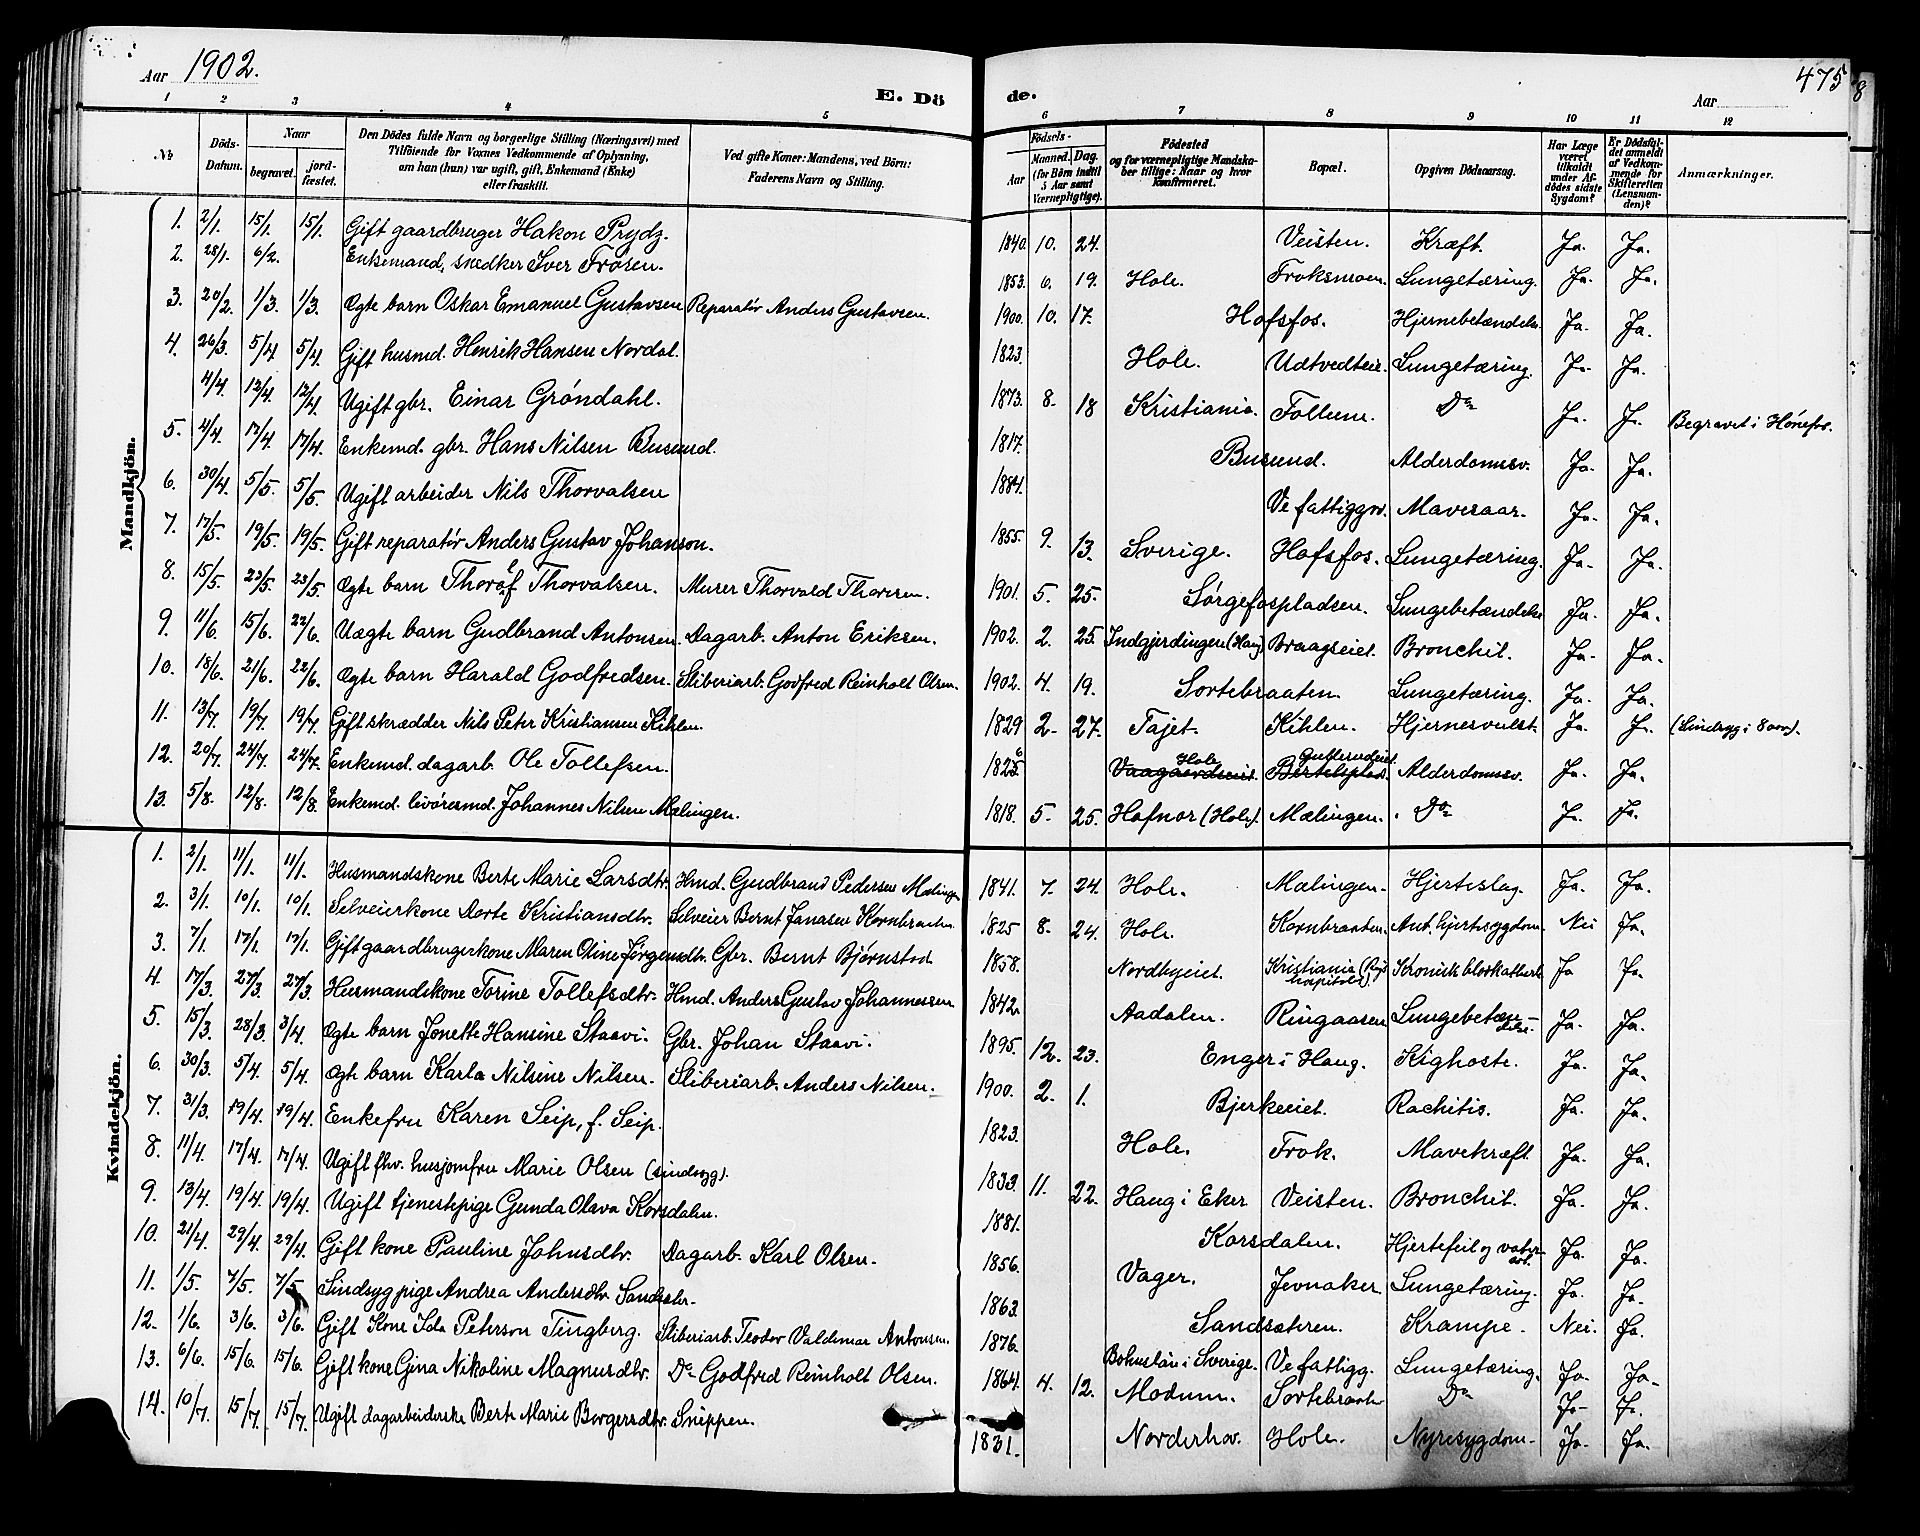 Aar 1902.
E. Döde.
Aar
475
8
1 2 3 4 5 6 7 8 9 10 11 12
No
Döds-Datum.
Naar
begravet.
jord-fæstet.
Den Dödes fulde Navn og borgerlige Stilling (Næringsvei) med
Tilföiende for Voxnes Vedkommende af Oplysning,
om han (hun) var ugift, gift, Enkemand (Enke)
eller fraskilt.
Ved gifte Koner: Mandens, ved Börn:
Faderens Navn og Stilling.
Födsels-
Aar
Maaned. Dag.
(for Börn indtil 5 Aar samt Værnepligtige).
Födested
og for værnepligtige Mandska-
ber tillige: Naar og hvor
konfirmeret.
Bopæl.
Opgiven Dödsaarsag.
Har Læge været tilkaldt under Afdödes sidste Sygdom?
Er Dödsfaldet anmeldt af Vedkommende for Skifteretten (Lensmanden)?
Anmærkninger.
Mandkjön.
1. 2/1. 15/1. 15/1. Gift gaardbruger Hakon Prydz. 1840. 10. 24. Veisten. Kræft. Ja. Ja.
2. 28/1. 6/2. Enkemand, snedker Iver Frosen. 1853. 6. 19. Hole. Froksmoen. Lungetæring. Ja. Ja.
3. 20/2. 1/3. 1/3. Ægte barn Oskar Emanuel Gustavsen Reparatør Anders Gustavsen. 1900. 10. 17. Hofsfos. Hjernebetændelse Ja. Ja.
4. 26/3. 5/4 5/4. Gift husmd. Henrik Hansen Nordal. 1823. Hole. Udtvedteie. Lungetæring. Ja. Ja.
4/4. 12/4. 12/4. Ugift gbr. Einar Grøndahl. 1873. 8. 18 Kristiania. Follum. Do Ja. Ja. Begravet i Hønefos.
5. 4/4. 17/4. 17/4. Enkemd. gbr. Hans Nilsen Busund. 1817. Busund. Alderdomssv. Ja. Ja.
6. 30/4. 5/5. 5/5. Ugift arbeider Nils Thorvalsen 1884. Ve fattiggrd. Mavesaar. Ja. Ja.
7. 17/5. 19/5. 19/5. Gift reparatør Anders Gustav Johanson. 1855. 9. 13. Sverige. Hofsfos. Lungetæring. Ja. Ja.
8. 15/5. 23/5. 23/5. Ægte barn Thorolf Thorvalsen. Murer Thorvald Thoresen. 1901. 5. 25. Sørgefospladsen. Lungebetændelse Ja. Ja.
9. 11/6. 15/6. 22/6. Uægte barn Gudbrand Antonsen. Dagarb. Anton Eriksen. 1902. 2. 25. Indgjerdingen (Haug) Braagseiet. Bronchit. Ja. Ja.
10. 18/6. 21/6. 22/6. Ægte barn Harald Godfredsen. Sliberiarb. Godfred Reinholt Olsen. 1902. 4. 19. Sortebraaten. Lungetæring. Ja. Ja.
11. 13/7. 19/7. 19/7. Gift skrædder Nils Peter Kristiansen Kihlen. 1829 2- 27. Tajet. Kihlen. Hjernesvulst. Ja. Ja. (Sindssyg i 8 aar).
12. 20/7. 24/7. 24/7. Enkemd. dagarb. Ole Tollefsen. 1825 6 Hole Vaagaardseiet. Gullerudeiet. Bertelsplads. Alderdomssv. Ja. Ja.
13. 5/8. 12/8. 12/8. Enkemd. livøresmd. Johannes Nilsen Mælingen. 1818. 5. 25. Hafnor (Hole). Mælingen. Do Ja. Ja.
Kvindekjön.
1. 2/1. 11/1. 11/1. Husmandskone Berte Marie Larsdtr. Hmd. Gudbrand Pedersen Mælingen 1841. 7. 24. Hole. Mælingen. Hjerteslag. Ja. Ja.
2. 3/1. 10/1. 10/1. Selveierkone Dorte Kristiansdtr. Selveier Bernt Janasen Kornbraaten. 1825 8. 24. Hole. Kornbraaten. Ant. hjertesygdom. Nei Ja.
3. 7/1. 17/1. 17/1. Gift gaardbrugerkone Maren Oline Jørgensdtr. Gbr. Bernt Bjørnstad 1858. Nordbyeiet. Kristiania (Rigshospitalet). Kronisk blærkatharh Ja Ja.
4. 17/3. 27/3. 27/3. Husmandskone Torine Tollefsdtr. Hmd. Anders Gustav Johannessen 1842. Aadalen. Ringaasen Lungebetændelse. Ja. Ja.
5. 15/3. 28/3. 3/4. Ægte barn Jonette Hansine Staavi. Gbr. Johan Staavi. 1895. 12. 23. Enger i Haug. Kighoste. Ja. Ja.
6. 30/3. 5/4. 5/4. Ægte barn Karla Nilsine Nilsen. Sliberiarb. Anders Nilsen. 1900. 2. 1. Bjerkeeiet. Rachitis. Ja. Ja.
7. 31/3. 19/4. 19/4. Enkefru Karen Seip, f. Seip. 1823. Hole. Frok. Mavekræft. Ja. Ja.
8. 11/4. 17/4. 17/4. Ugift fhv. husjomfru Marie Olsen (sindssyg). 1833. 11. 22. Haug i Eker Veisten. Bronchit. Ja. Ja.
9. 13/4. 19/4. 19/4. Ugift tjenestepige Gunda Olava Korsdalen. 1881. Korsdalen. Hjertefeil og vatersot. Ja. Ja.
10. 21/4. 29/4. 29/4. Gift kone Pauline Johnsdtr. Dagarb. Karl Olsen. 1856. Vager. Jevnaker. Lungetæring. Ja. Ja.
11. 1/5. 7/5. 7/5. Sindsyg pige Andrea Andersdtr. Sandsætr. 1863. Sandsæteren. Krampe. Nei. Ja.
12. 1/6. 3/6. 3/6. Gift Kone Ida Peterson Tingberg. Sliberiarb. Teodor Valdemar Antonsen. 1876. Bohuslän i Sverige. Ve fattigg. Lungetæring. Ja. Ja.
13. 6/6. 15/6. 15/6. Gift kone Gina Nikoline Magnusdtr. Do Godfred Reinholt Olsen. 1864. 4. 12. Modum. Sortebraaten Do Ja. Ja.
14. 10/7. 15/7. 15/7. Ugift dagarbeiderske Berte Marie Borgersdtr. Snippen. 1831. Norderhov. Hole. Nyresygdom. Ja. Ja.